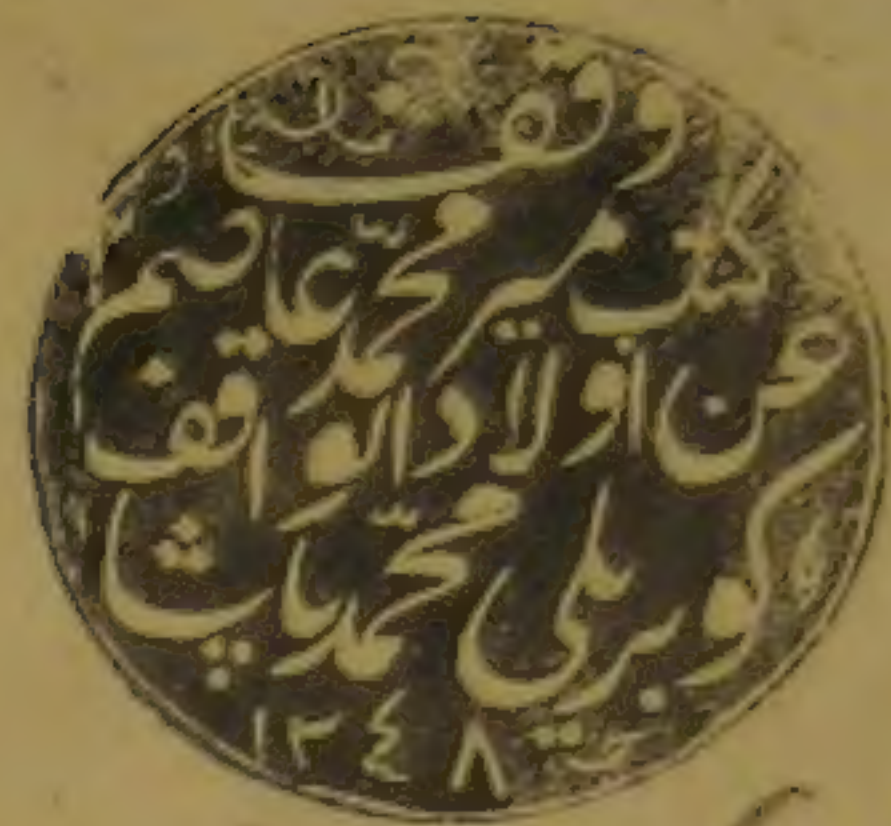 وقف
كتب مير محمد عاصم
من اولاد الواقف
كوبريلي محمد پاشا
١٢٤٨